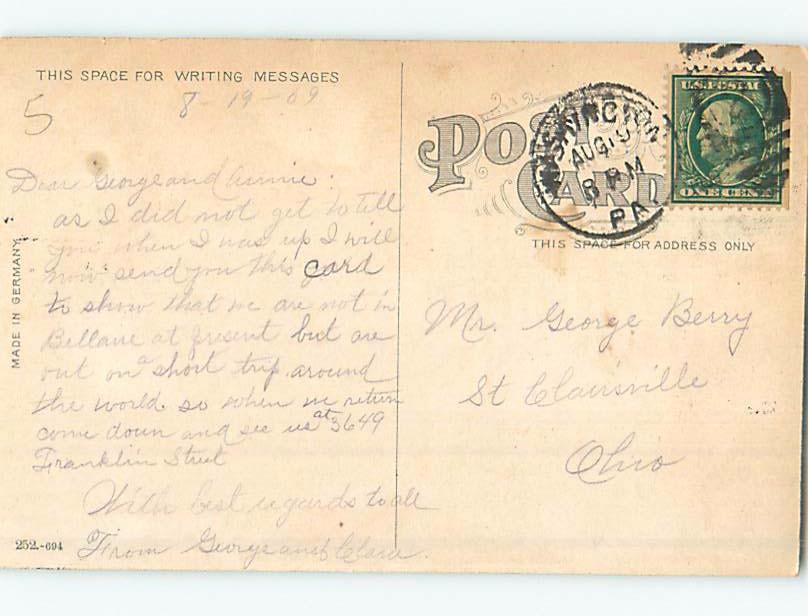 THIS SPACE FOR WRITING MESSAGES
8-19-09
5
Dear George and Annie.
as I did not get to tell
you when I was up I will
now send you this card
to show that we are not in
Bellaire at present but are
out on a short trip around
the world. so when we return
come down and see us at 3649
Franklin Street
With best regards to all
From George and Clara.
MADE IN GERMANY
252.-694
POST CARD
WASHINGTON
AUG 19
8 PM
PA.
U.S. POSTAGE
ONE CENT
THIS SPACE FOR ADDRESS ONLY
Mr. George Berry
St Clairsville
Ohio